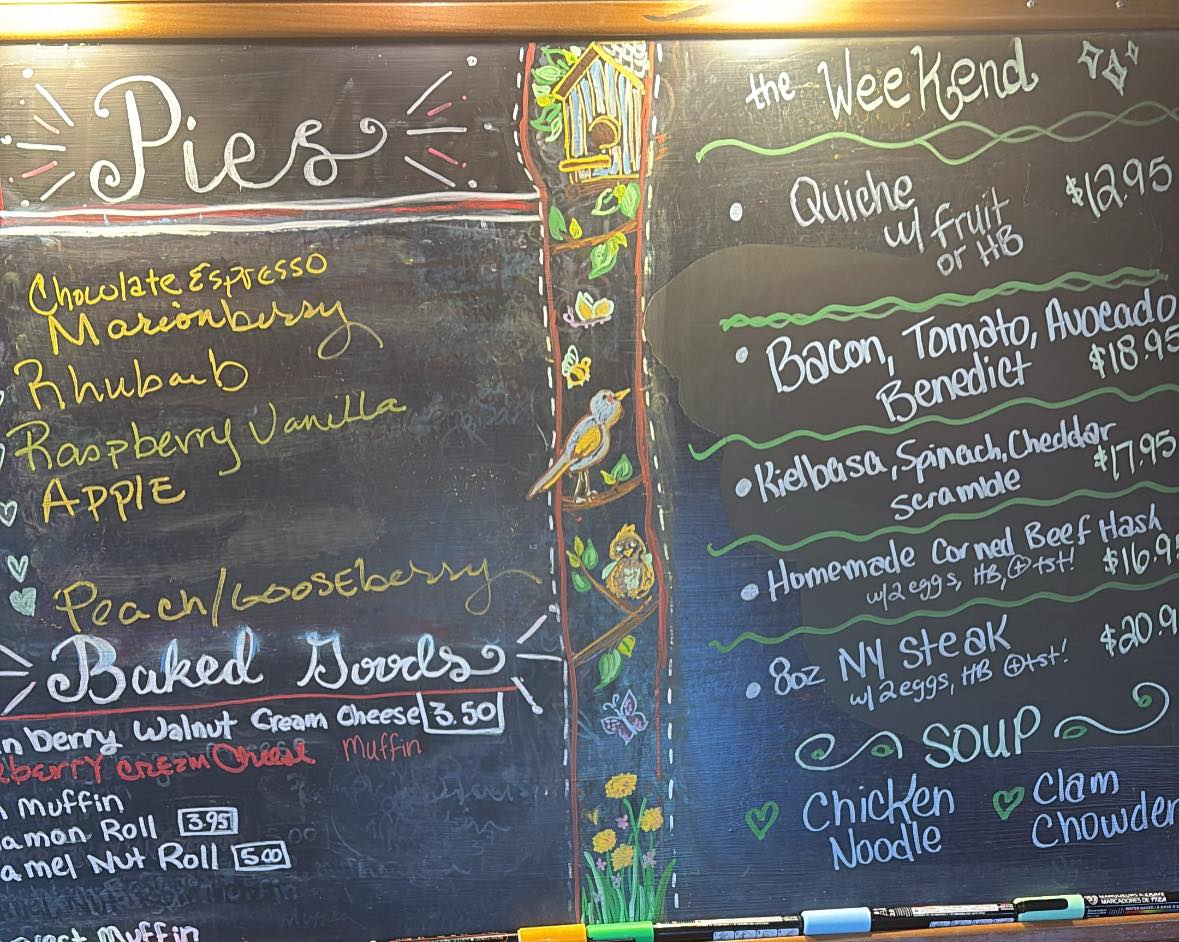 Pies
Chocolate Espresso
Marionberry
Rhubarb
Raspberry Vanilla
APPLE
Peach/Gooseberry
Baked Goods
nberry Walnut Cream Cheese 3.50
eberry cream Cheese Muffin
Muffin
amon Roll 3.95
amel Nut Roll 5.00
Muffin
the Weekend
Quiche $12.95
w/ fruit
or HB
Bacon, Tomato, Avocado
Benedict $18.95
Kielbasa, Spinach, Cheddar
scramble $17.95
Homemade Corned Beef Hash
w/2 eggs, HB, ⊕tst! $16.9
8oz NY Steak $20.9
w/2 eggs, HB ⊕tst!
SOUP
Chicken
Noodle
Clam
Chowder
MARCADORES DE TIZA